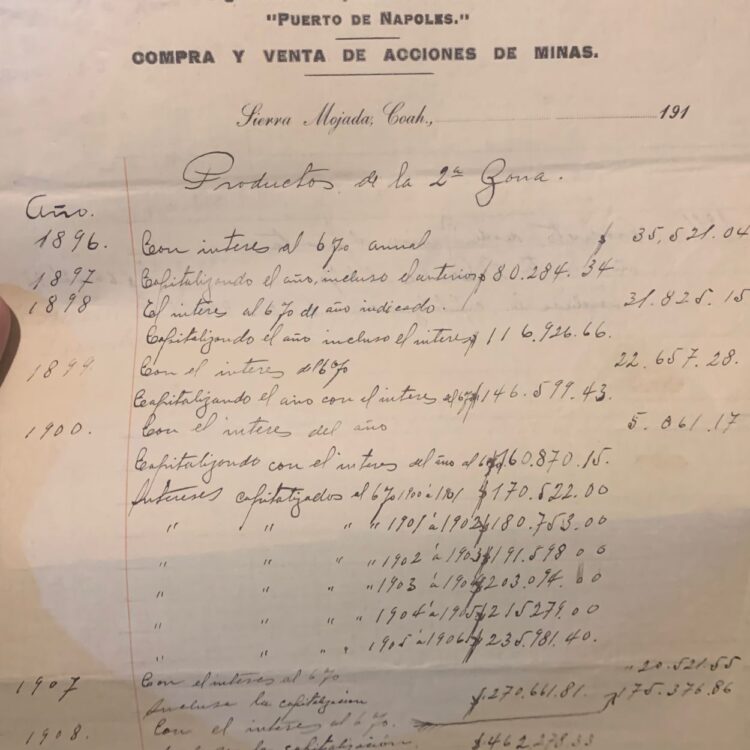 "PUERTO DE NAPOLES."
COMPRA Y VENTA DE ACCIONES DE MINAS.
Sierra Mojada, Coah., 191
Productos de la 2ª Zona.
Año.
1896. Con interes al 6% anual $ 35,521.04
1897 Capitalizando el año, incluso el anterior $80.284.34
1898 El interes al 6% del año indicado. 31.825.15
Capitalizando el año incluso el interes $116.926.66.
1899 Con el interes al 6% 22.657.28.
Capitalizando el año con el interes al 6% $146.599.43.
1900. Con el interes del año 5.061.17
Capitalizando con el interes del año al 6% $160.870.15.
Intereses capitalizados al 6% 1900 á 1901 $170.522.00
" " " " 1901 á 1902 $180.753.00
" " " " 1902 á 1903 $191.598 00
" " " " 1903 á 1904 $203.094.00
" " " " 1904 á 1905 $215279.00
" " " " 1905 á 1906 $235.981.40.
1907 Con el interes al 6% " 20.521.55
inclusa la capitalizacion $270.661.81. 175.376.86
1908. Con el interes al 6%.
la capitalización $462.278.33